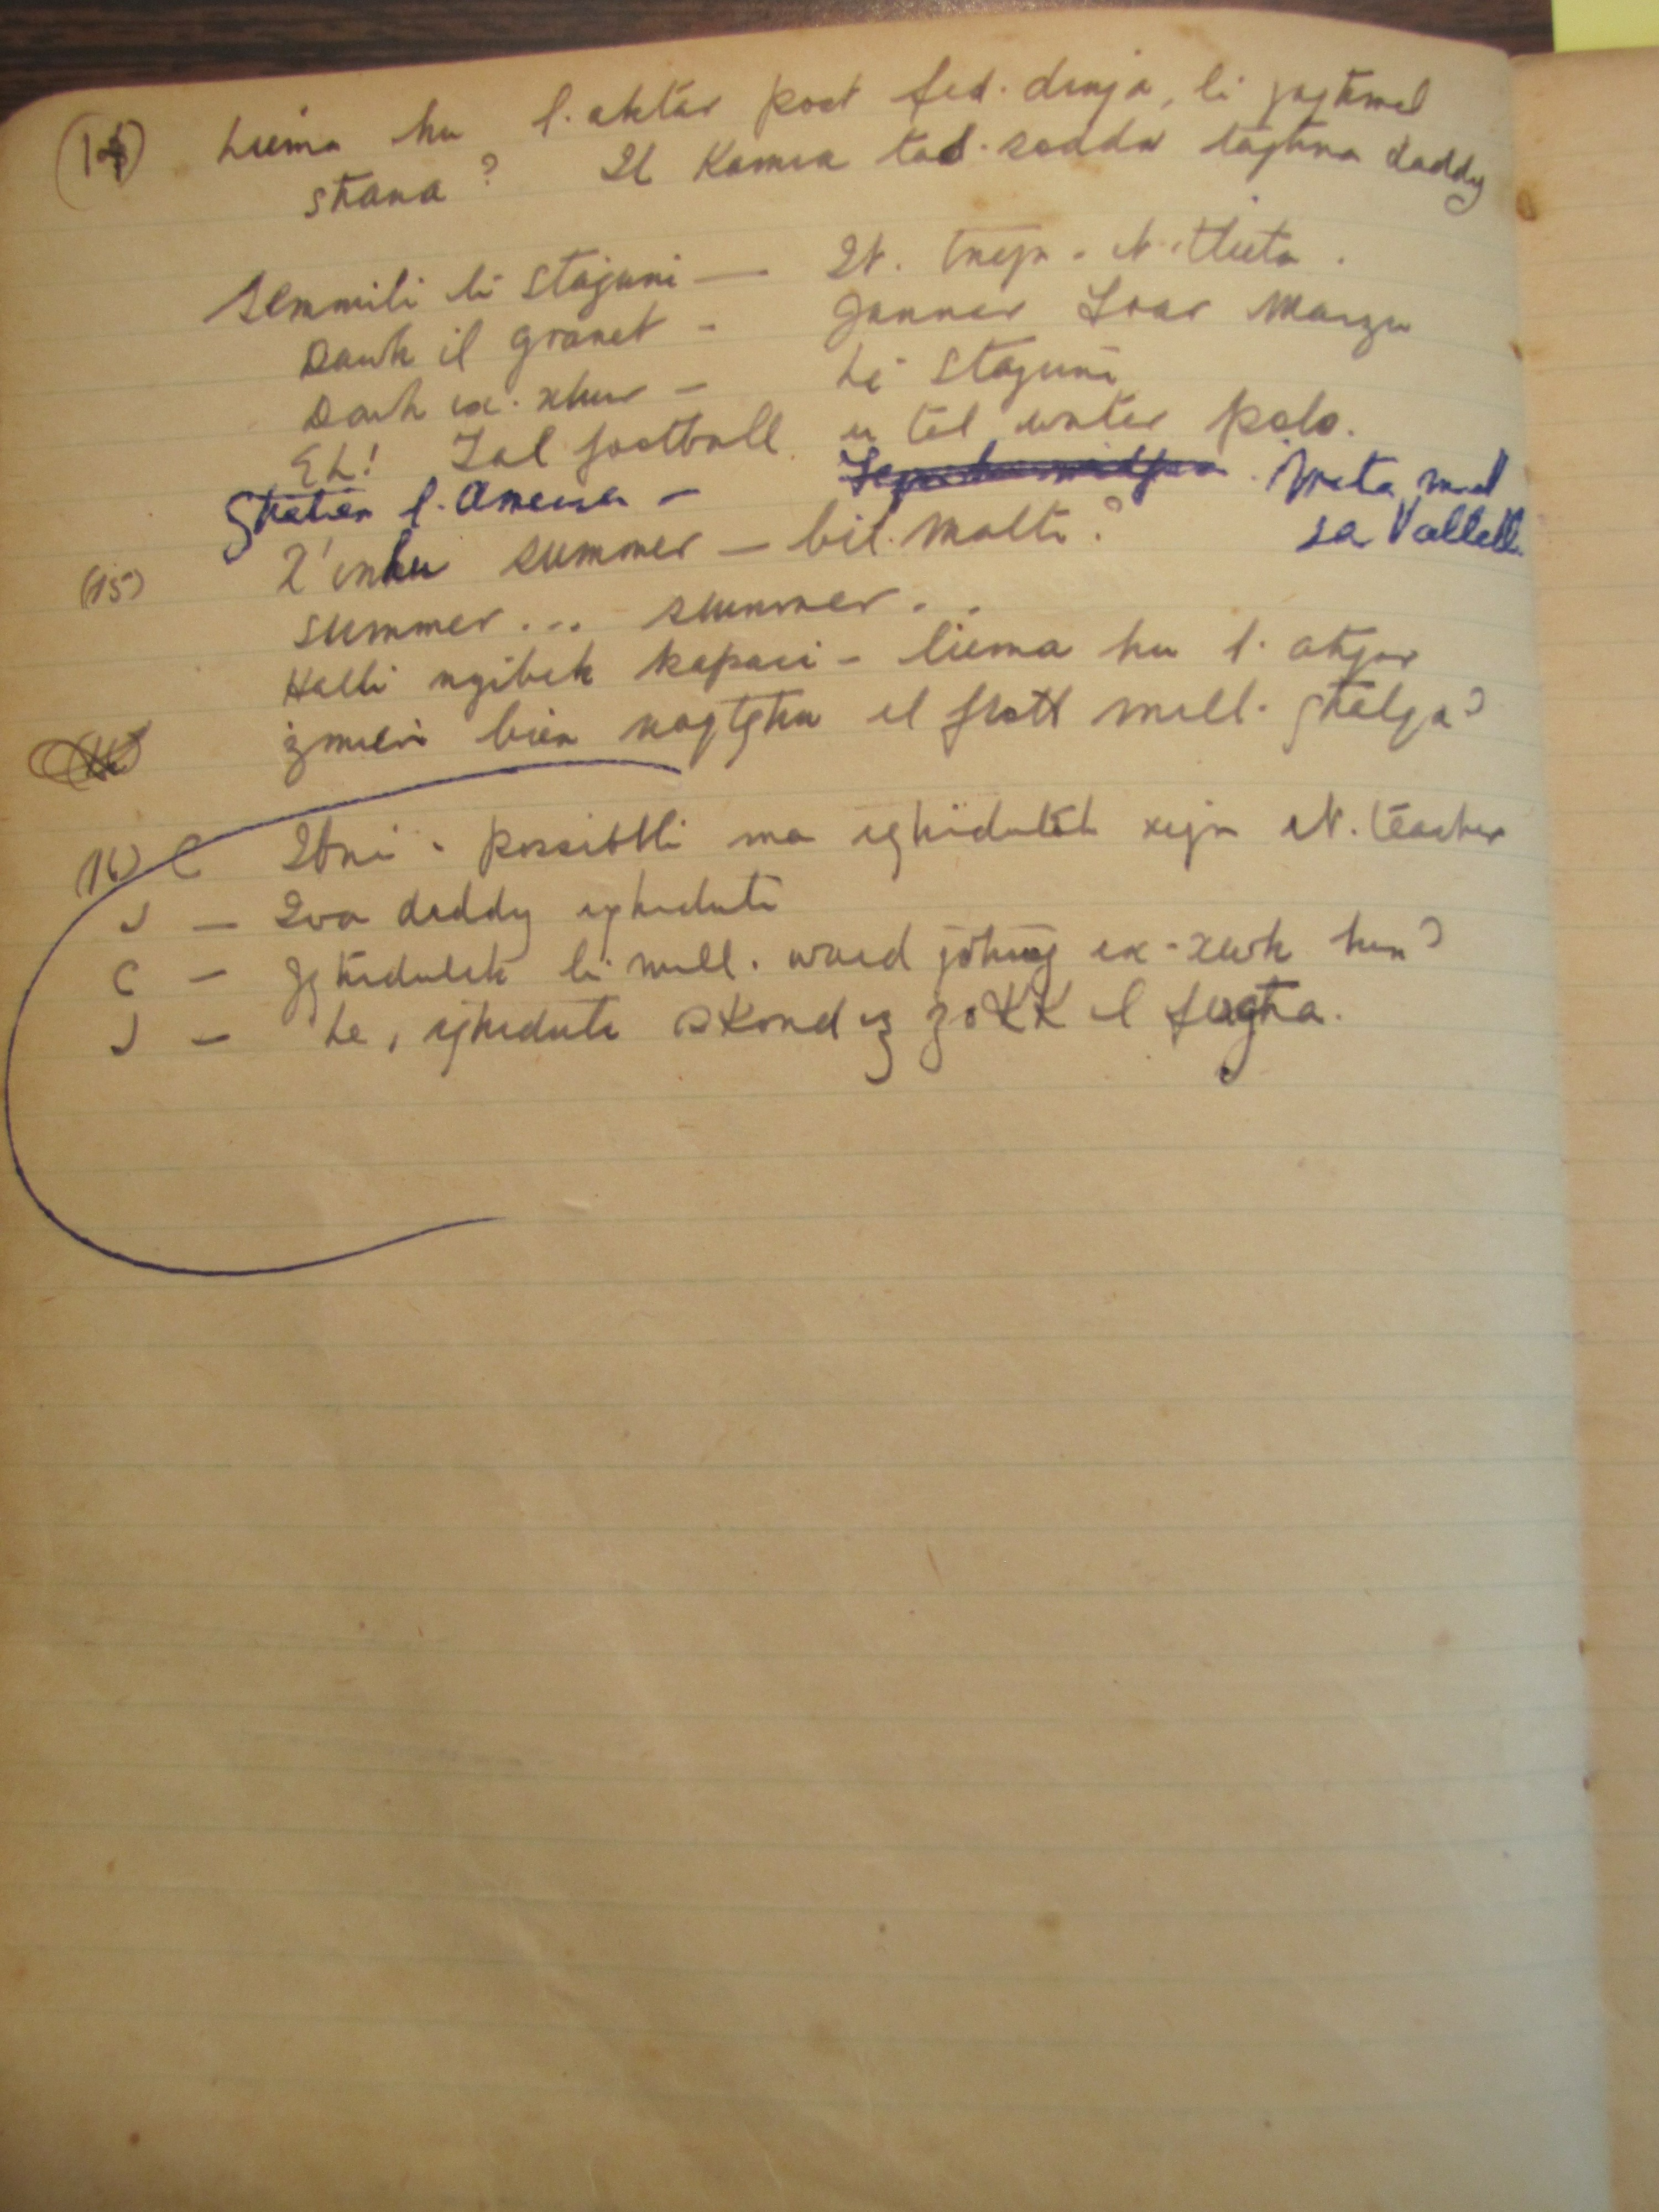 (14) Liema hu l. aktar post fid. dinja, li jagħmel
sħana? Il Kamra tas. sodda tagħna daddy
Semmili li staġuni — It. tnejn. It. tlieta.
Dawk il granet - Jannar Frar Marzu
Dawk ix. xhur - Li staġuni
EH! Tal football u tal water polo.
Għatièn l. Amerika - Wrata mal
sa Vallett.
(15) X'inhu summer — bil. Malti?
summer... summer..
Halli nġibek kapaci - liema hu l. aħjar
żmien biex naqtgħu il frott mill. għalqa?
(16) C Ibni. possibbli ma għidulek xejn it. teacher
J — Iva daddy għiduli
C — Għidulek li mill. ward joħroġ ix-xewk hux?
J — Le, għiduli skond iz zokk il fergħa.